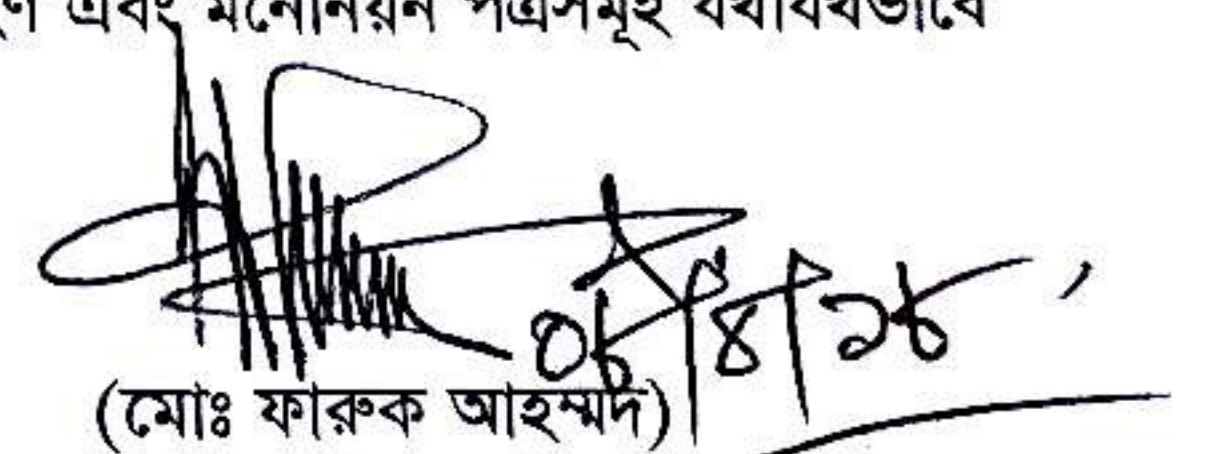 এবং মনোনয়ন পত্রসমূহ যথাযথভাবে
০৮/৪/১৮
(মোঃ ফারুক আহম্মদ)